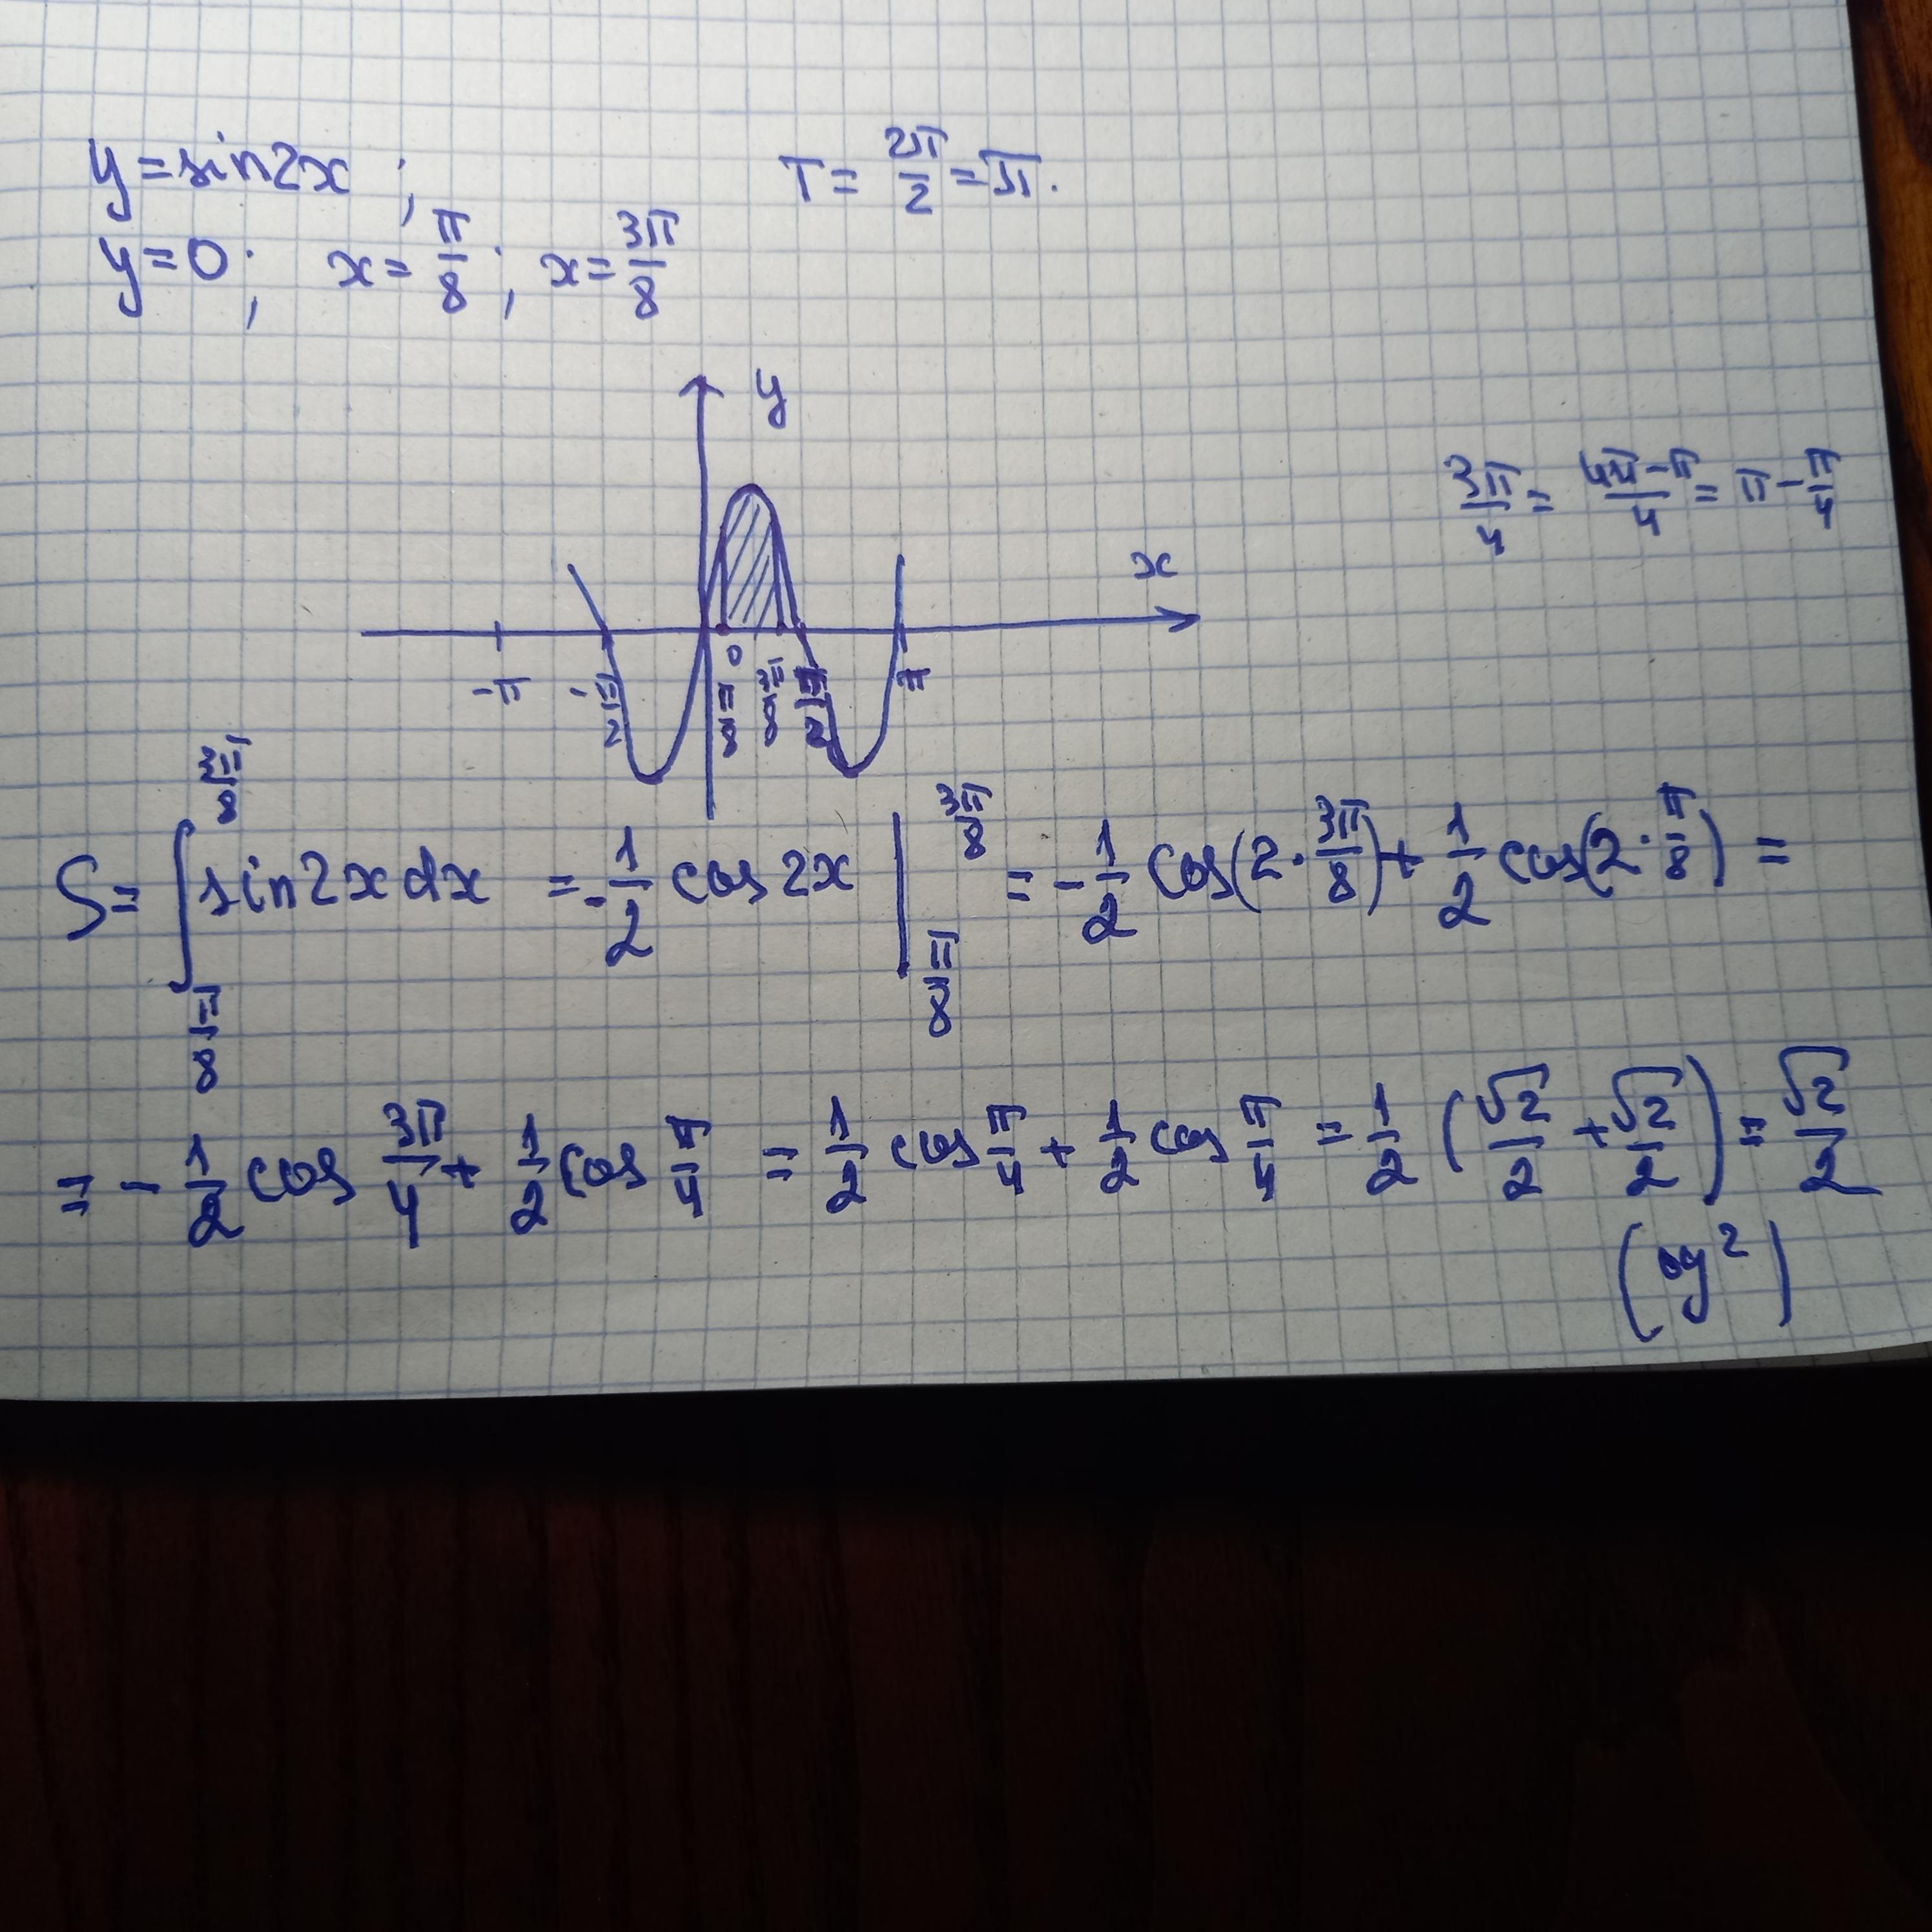 y = sin2x ; T = 2π/2 = π.
y = 0 ; x = π/8 ; x = 3π/8
y
3π/4 = 4π-π/4 = π - π/4
x
-π -π/2 0 π/8 3π/8 π/2 π
S = ∫_{π/8}^{3π/8} sin2x dx = -1/2 cos 2x |_{π/8}^{3π/8} = -1/2 cos(2·3π/8) + 1/2 cos(2·π/8) =
= -1/2 cos 3π/4 + 1/2 cos π/4 = 1/2 cos π/4 + 1/2 cos π/4 = 1/2 (√2/2 + √2/2) = √2/2
(од²)